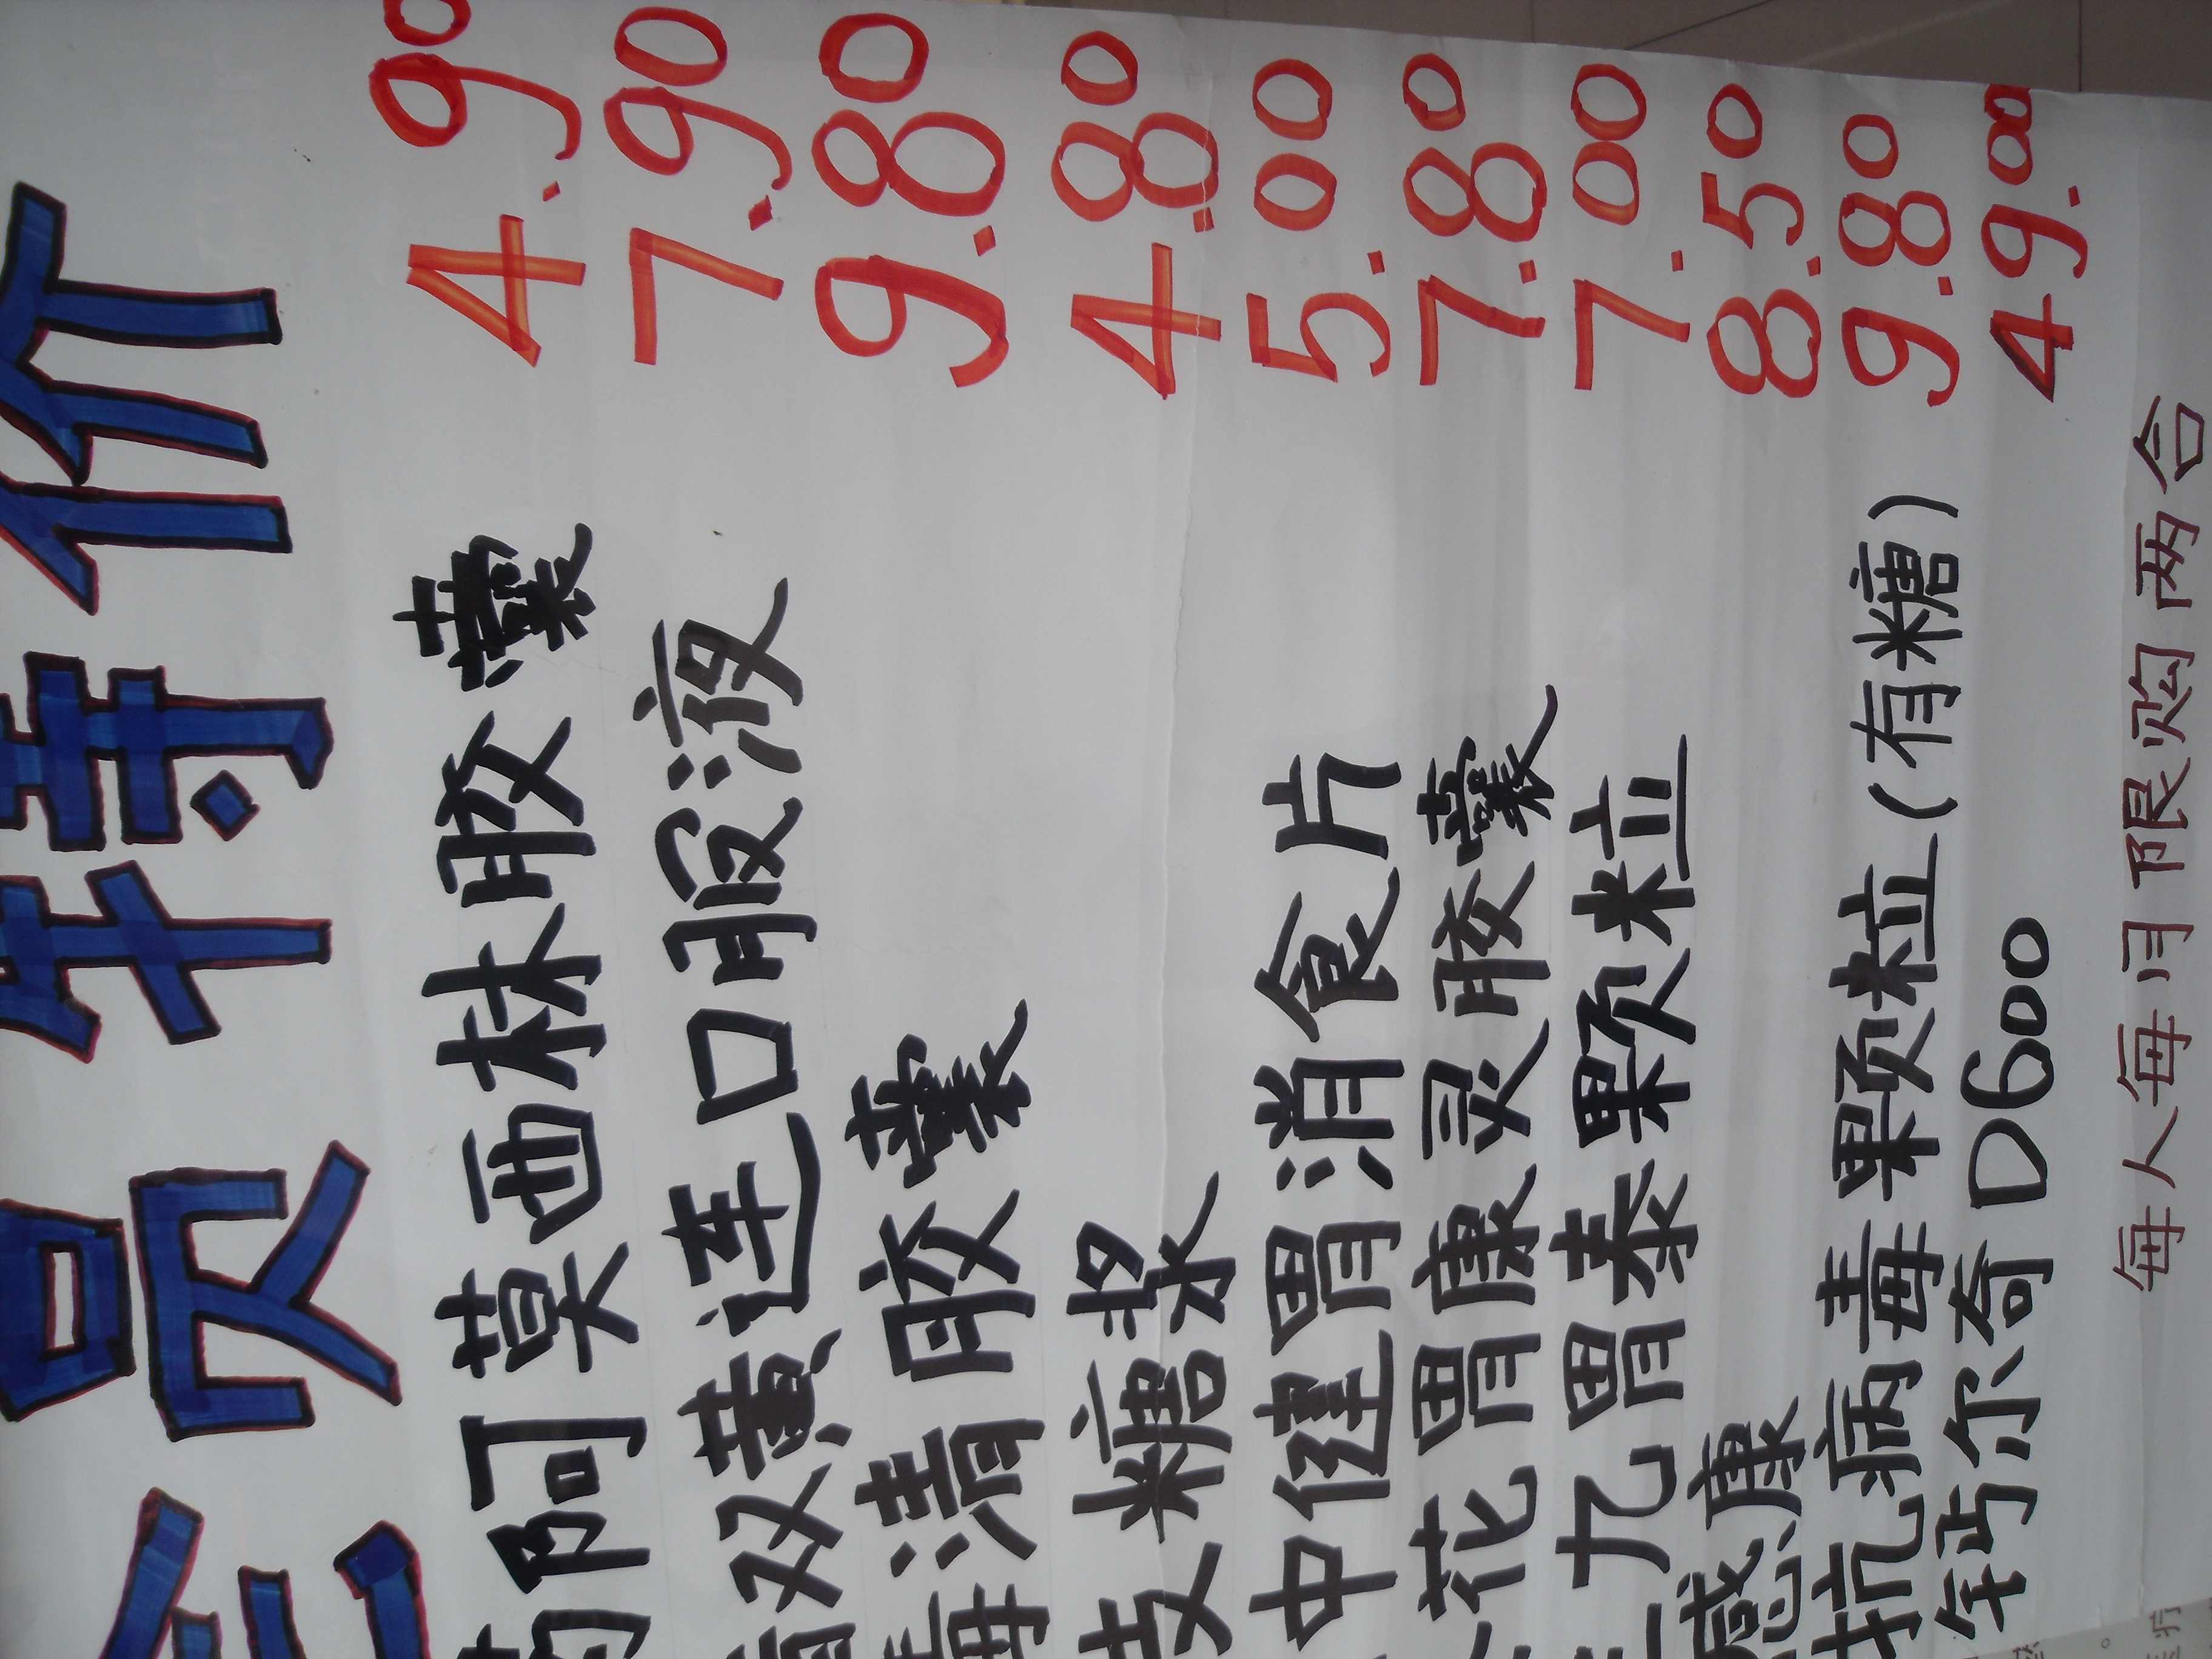 会员特价
药阿莫西林胶囊 4.90
双黄连口服液 7.90
毒清胶囊 9.80
支糖浆 4.80
中健胃消食片 5.00
花胃康灵胶囊 7.80
三九胃泰颗粒 7.00
感康 8.50
抗病毒颗粒(有糖) 9.80
钙尔奇D600 49.00
每人每月限购两合